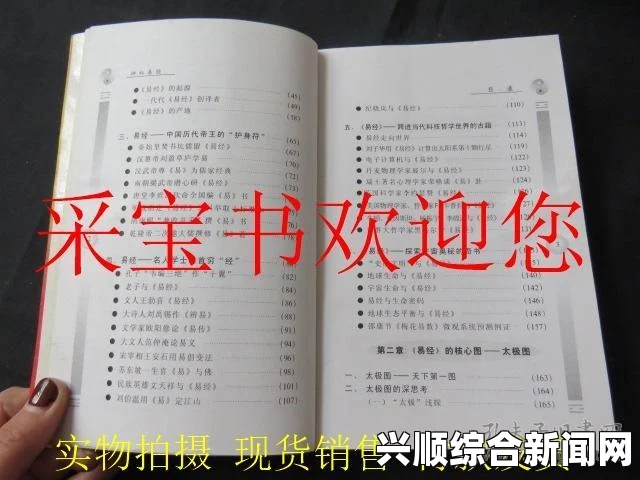 《易经》的起源 (45)
一代代《易经》创译者 (49)
《易经》的产地 (58)
三、易经——中国历代帝王的“护身符” (65)
秦始皇焚书坑儒留《易经》 (67)
汉惠帝刘盈草庐学易 (70)
汉武帝尊《易》为儒家经典 (72)
南朝梁武帝潜心研《易经》 (73)
书 (76)
乾隆帝二次 (78)
易经——名人学士 首穷“经” (82)
孔子“韦编三绝”作“十翼” (84)
老子与《易经》 (87)
文人王勃喜《易经》 (88)
大诗人刘禹锡作《辨易》 (89)
文学家欧阳修论《易传》 (91)
大文人范仲淹论易义 (92)
宋宰相王安石用易倡变法 (96)
苏东坡一生喜《易》与佛 (98)
民族英雄文天祥与《易经》 (101)
刘伯温用《易》定江山 (107)
目 录
纪晓岚与《易经》 (110)
五、《易经》——跨进当代科技哲学世界的古籍 (113)
易经走向世界 (114)
刘子华用《易经》计算出太阳系第十颗行星 (121)
电子计算机与《易经》 (123)
丹麦物理学家玻尔与《易经》 (124)
瑞士著名心理学家荣格诵《易》卦 (124)
《易经》——探索宇宙奥秘的奇书
地球生命与《易经》
宇宙生命与《易经》 (141)
易经与生命密码 (145)
地球生态平衡与《易经》 (152)
邵康节《梅花易数》微观系统预测例证 (157)
第二章:《易经》的核心图——太极图
一、太极图——天下第一图 (163)
二、太极图的深思考 (164)
（一）“太极”浅探 (165)
采宝书欢迎您
实物拍摄 现货销售
兴顺综合新闻网